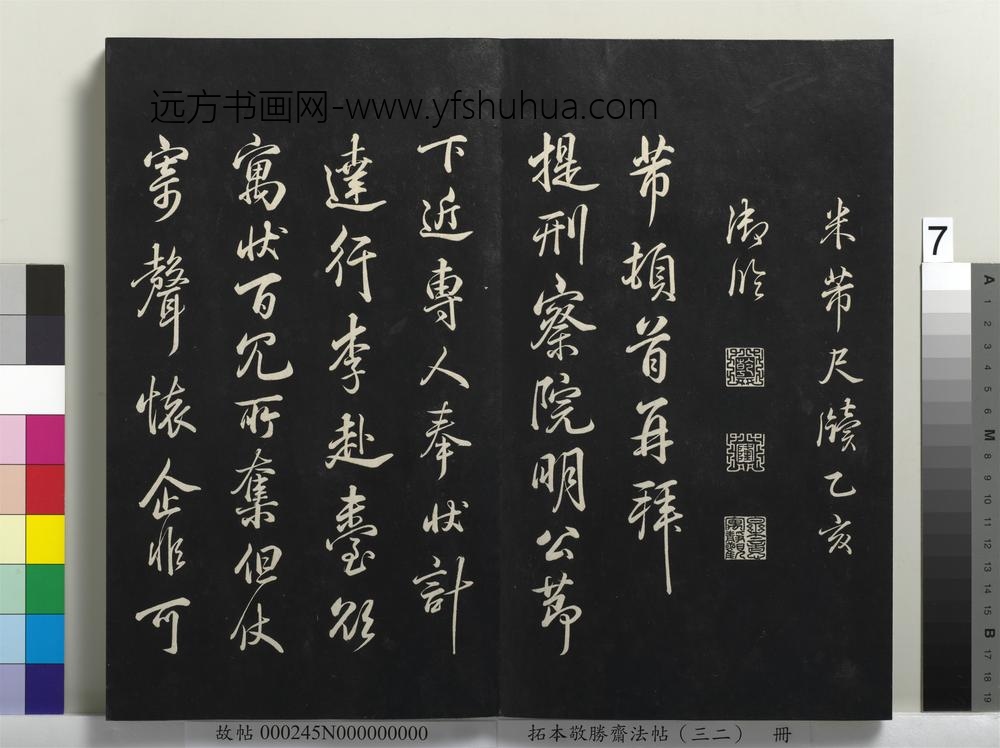 远方书画网-www.yfshuhua.com
米芾尺牘乙亥
御臨
芾頓首再拜
提刑察院明公節
下近專人奉狀計
達行李赴臺欲
寓狀百冗所奪但仗
寄聲懷企非可
7
A 1 2 3 4 5 6 M 8 9 10 11 12 13 14 15 B 17 18 19
故帖 000245N000000000
拓本敬勝齋法帖（三二） 冊